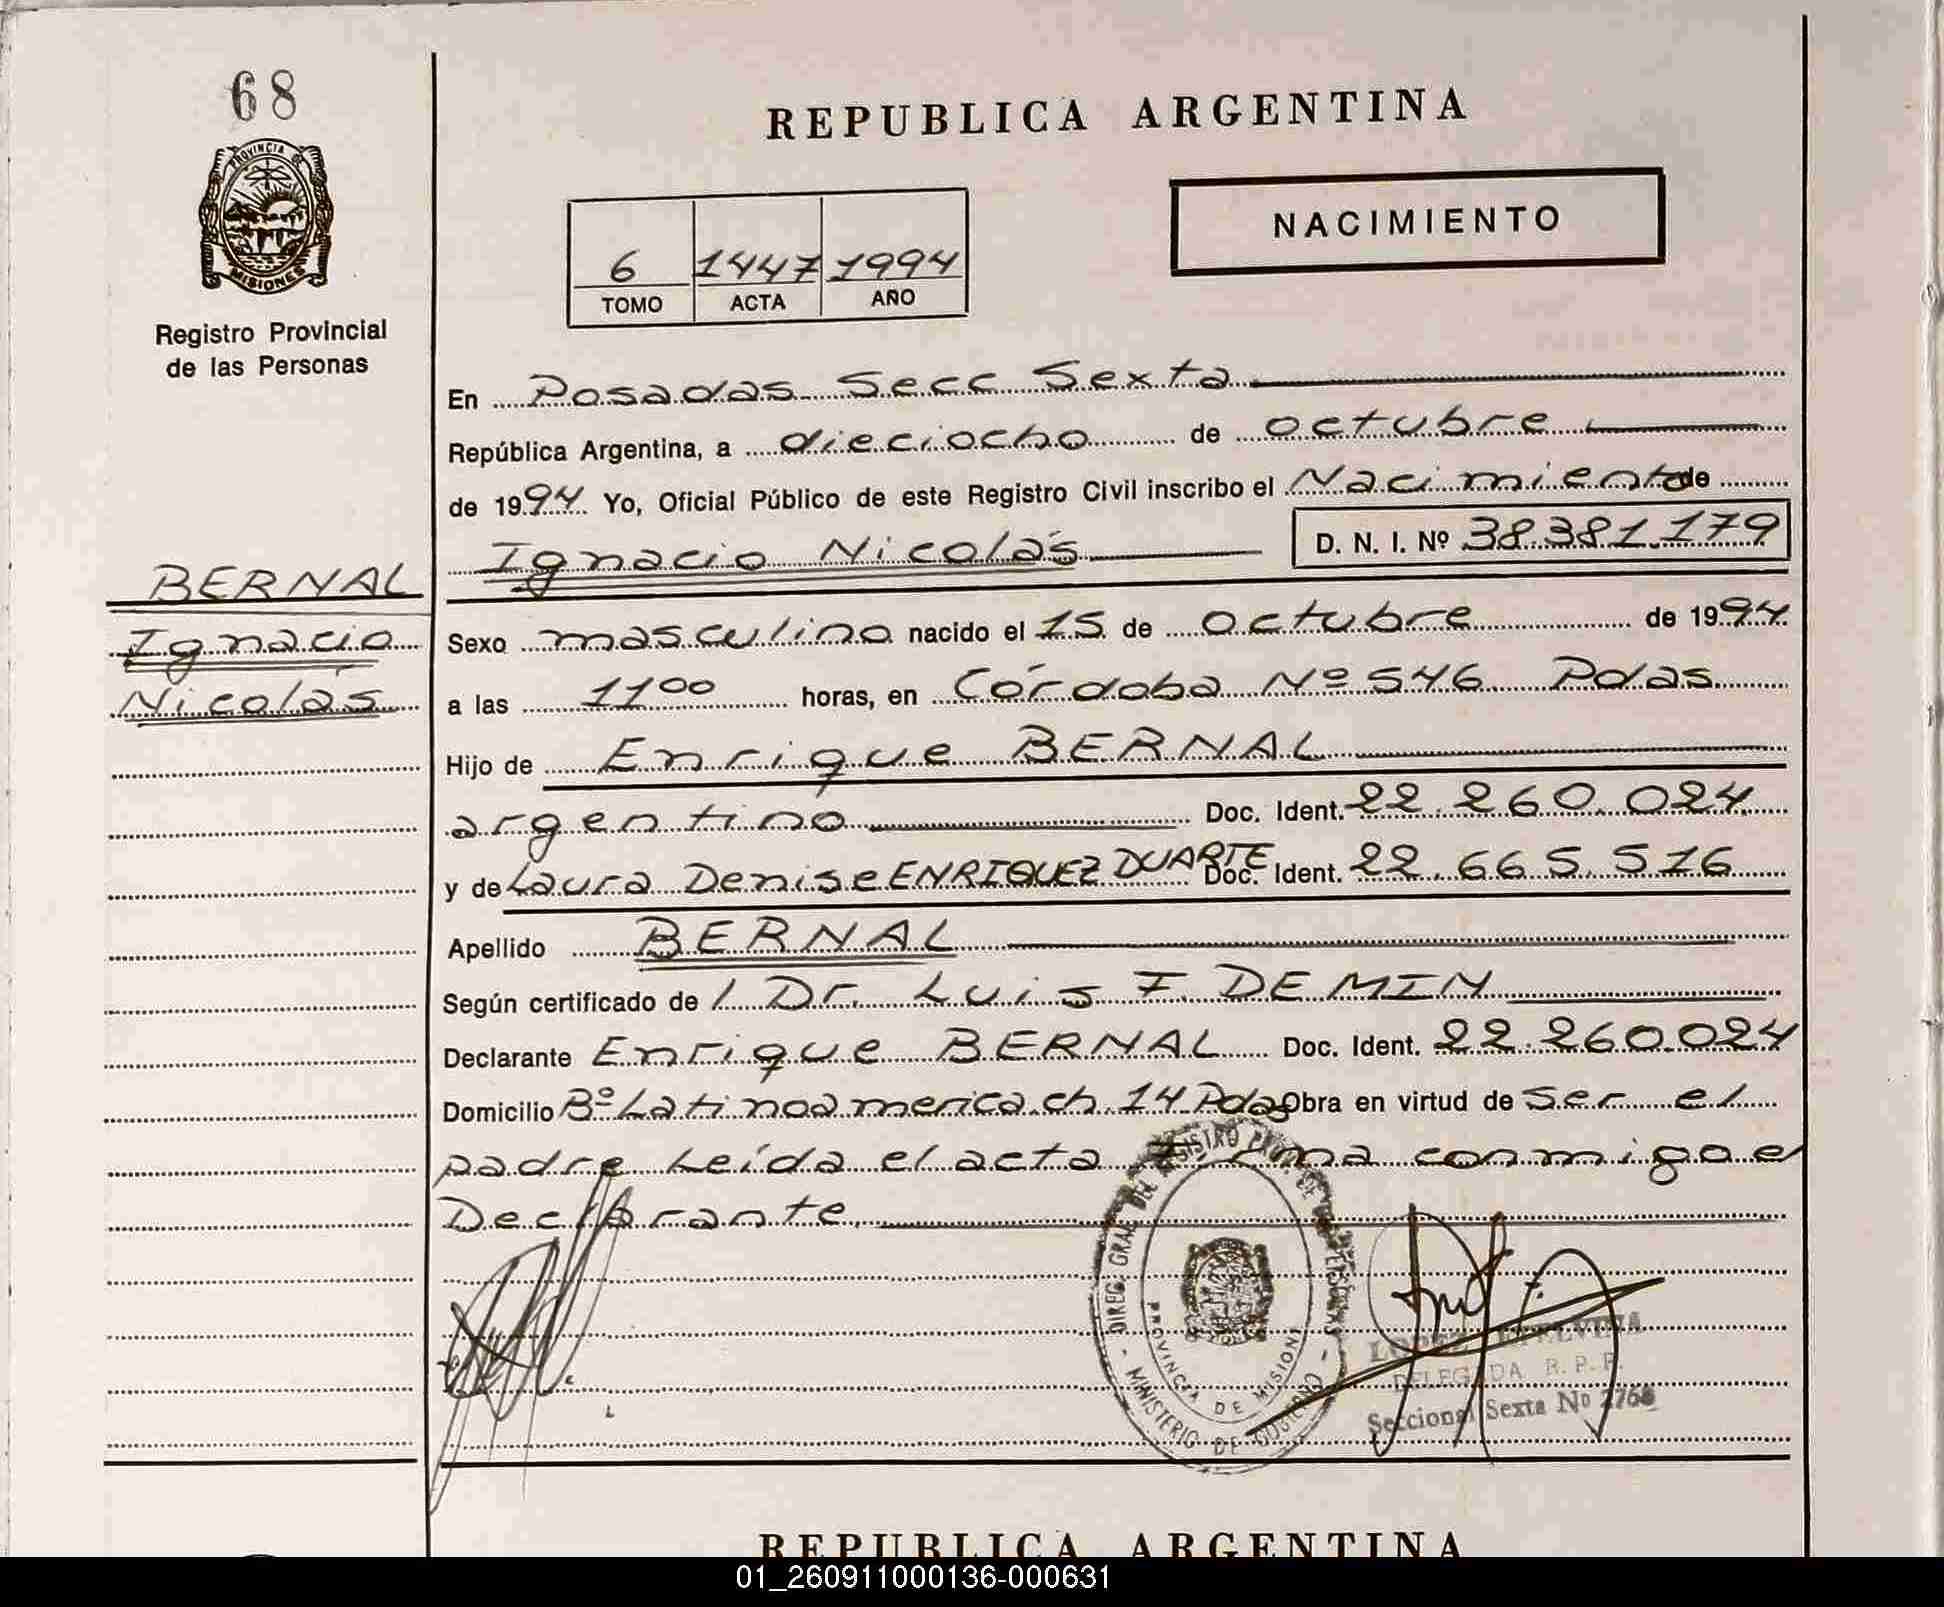 68
PROVINCIA DE
MISIONES
Registro Provincial
de las Personas
BERNAL
Ignacio
Nicolás
REPUBLICA ARGENTINA
NACIMIENTO
6 1447 1994
TOMO ACTA AÑO
En Posadas Secc Sexta
República Argentina, a dieciocho de octubre
de 1994 Yo, Oficial Público de este Registro Civil inscribo el Nacimiento de
Ignacio Nicolás D. N. I. Nº 38.381.179
Sexo masculino nacido el 15 de octubre de 1994
a las 11 00 horas, en Córdoba Nº 546 Pdas
Hijo de Enrique BERNAL
argentino Doc. Ident. 22.260.024
y de Laura Denise ENRIQUEZ DUARTE Doc. Ident. 22.665.516
Apellido BERNAL
Según certificado de / Dr. Luis F. DEMIN
Declarante Enrique BERNAL Doc. Ident. 22.260.024
Domicilio Bº Latinoamerica ch. 14 Pdas Obra en virtud de Ser el
padre Leída el acta Firma conmigo el
Declarante
DIREC. GRAL DEL REGISTRO PROV. DE LAS PERSONAS
PROVINCIA DE MISIONES
- MINISTERIO DE GOBIERNO -
LOPEZ ETELVINA
DELEGADA R. P. P.
Seccional Sexta Nº 2768
REPUBLICA ARGENTINA
01_260911000136-000631